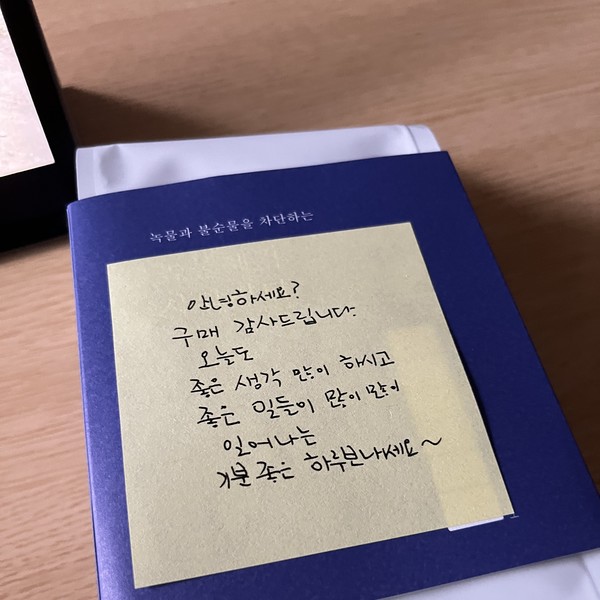 녹물과 불순물을 차단하는
안녕하세요?
구매 감사드립니다.
오늘도
좋은 생각 많이 하시고
좋은 일들이 많이 많이
일어나는
기분 좋은 하루보내세요~